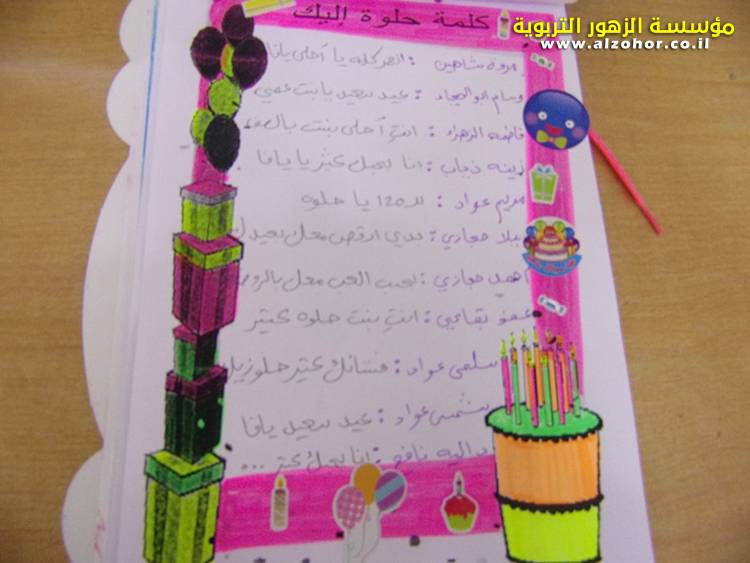 مؤسسة الزهور التربوية
www.alzohor.co.il
كلمة حلوة إليك
مروة شاهين : يا أحلى يافا
وسام ابو : عيد سعيد يا بنت عمي
فاطمه الزهراء : انتِ أحلى بنت بالصف
زينه ذباب : انا بحبك كثر يا يافا
مريم عواد : للـ120 يا حلوه
حجازي : بدي ارقص معك بعيدك
احمد حجازي : بحب العب معك بالروضه
عفو بقاعي : انتِ بنت حلوه كتير
سلمى عواد : فستانك كتير حلو زيك
شمس عواد : عيد سعيد يافا
داليه نافع : انا بحبك كتير ...